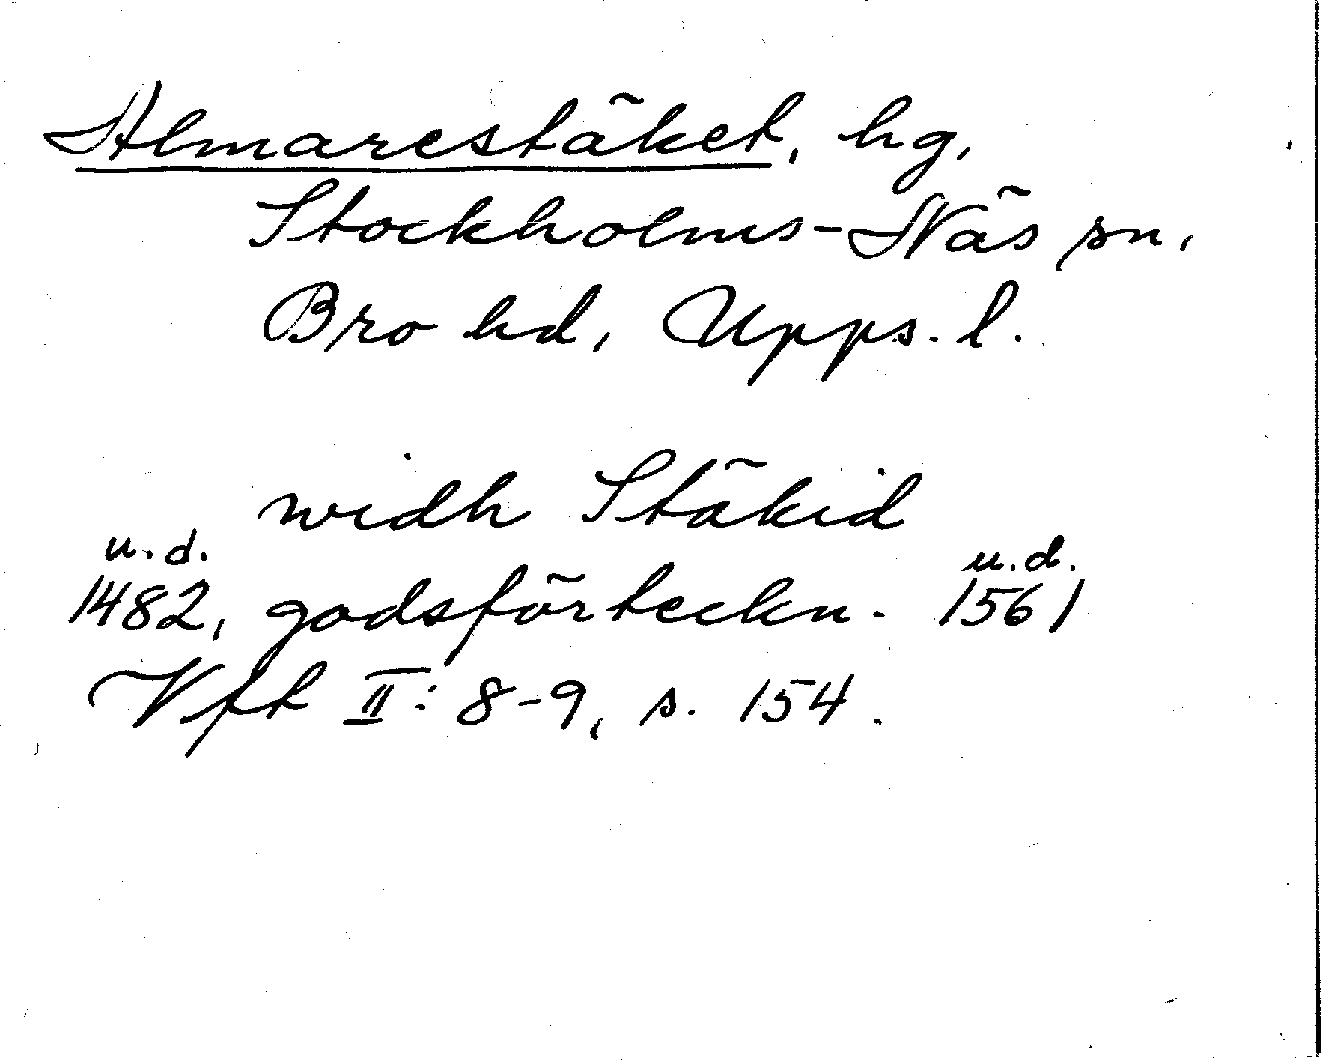 Almarestäket, hg,
Stockholms-Näs sn,
Bro hd, Upps. l.
widh Stäkid
u.d. u.d.
1482, godsförteckn. 1561
Vft II: 8-9, s. 154.